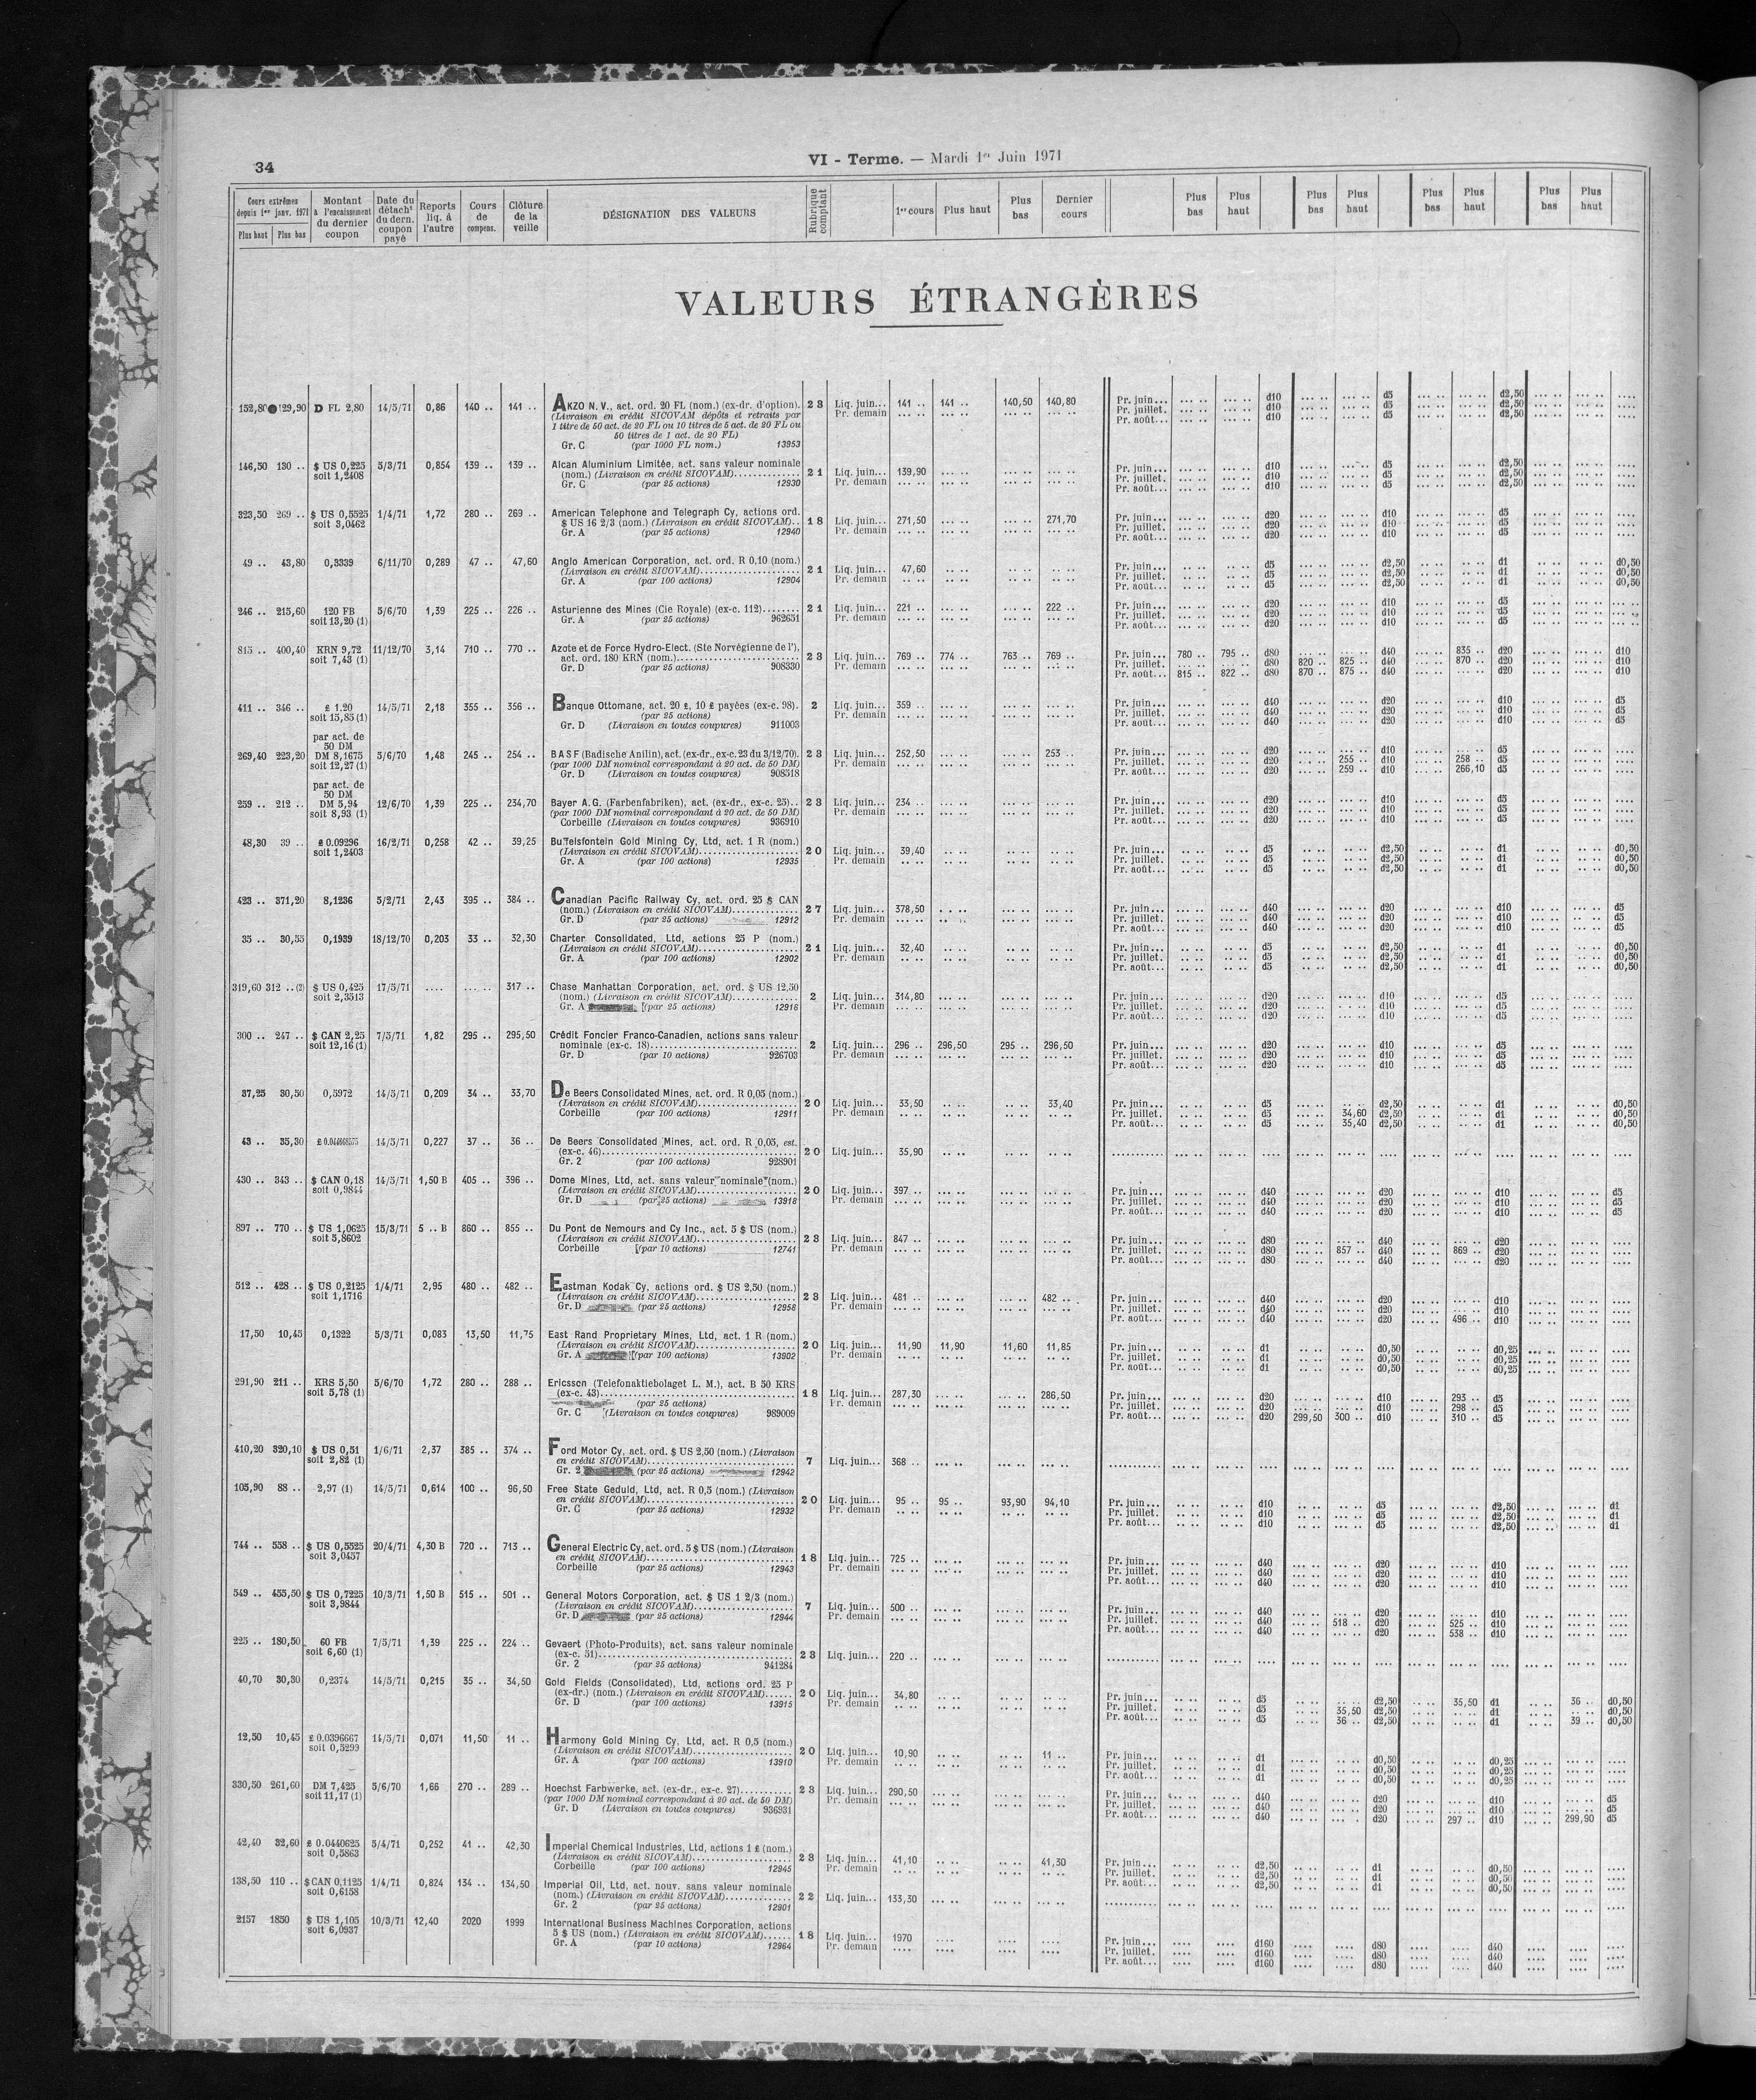 34
VI - Terme. — Mardi 1er Juin 1971
Cours extrêmes depuis 1er janv. 1971 Plus haut Plus bas
Montant à l'encaissement du dernier coupon
Date du détacht du dern. coupon payé
Reports liq. à l'autre
Cours de compens.
Clôture de la veille
DÉSIGNATION DES VALEURS
Rubrique comptant
1er cours Plus haut Plus bas Dernier cours
Plus bas Plus haut Plus bas Plus haut Plus bas Plus haut Plus bas Plus haut
VALEURS ÉTRANGÈRES
152,80 129,90 D FL 2,80 14/5/71 0,86 140 .. 141 .. AKZO N.V., act. ord. 20 FL (nom.) (ex-dr. d'option). 23 Liq. juin... 141 .. 141 .. 140,50 140,80 Pr. juin... d10 d5 d2,50
(Livraison en crédit SICOVAM dépôts et retraits par Pr. demain Pr. juillet. d10 d5 d2,50
1 titre de 50 act. de 20 FL ou 10 titres de 5 act. de 20 FL ou Pr. août... d10 d5 d2,50
50 titres de 1 act. de 20 FL)
Gr. C (par 1000 FL nom.) 13953
146,50 130 .. $ US 0,225 5/3/71 0,854 139 .. 139 .. Alcan Aluminium Limitée, act. sans valeur nominale
soit 1,2408 (nom.) (Livraison en crédit SICOVAM) 21 Liq. juin... 139,90 Pr. juin... d10 d5 d2,50
Gr. C (par 25 actions) 12930 Pr. demain Pr. juillet. d10 d5 d2,50
Pr. août... d10 d5 d2,50
323,50 269 .. $ US 0,5525 1/4/71 1,72 280 .. 269 .. American Telephone and Telegraph Cy, actions ord.
soit 3,0462 $ US 16 2/3 (nom.) (Livraison en crédit SICOVAM).. 18 Liq. juin... 271,50 271,70 Pr. juin... d20 d10 d5
Gr. A (par 25 actions) 12940 Pr. demain Pr. juillet. d20 d10 d5
Pr. août... d20 d10 d5
49 .. 43,80 0,3339 6/11/70 0,289 47 .. 47,60 Anglo American Corporation, act. ord. R 0,10 (nom.)
(Livraison en crédit SICOVAM) 21 Liq. juin... 47,60 Pr. juin... d5 d2,50 d1 d0,50
Gr. A (par 100 actions) 12904 Pr. demain Pr. juillet. d5 d2,50 d1 d0,50
Pr. août... d5 d2,50 d1 d0,50
246 .. 215,60 120 FB 5/6/70 1,39 225 .. 226 .. Asturienne des Mines (Cie Royale) (ex-c. 112) 21 Liq. juin... 221 .. 222 .. Pr. juin... d20 d10 d5
soit 13,20 (1) Gr. A (par 25 actions) 962651 Pr. demain Pr. juillet. d20 d10 d5
Pr. août... d20 d10 d5
815 .. 400,40 KRN 9,72 11/12/70 3,14 710 .. 770 .. Azote et de Force Hydro-Elect. (Ste Norvégienne de l'),
soit 7,43 (1) act. ord. 180 KRN (nom.) 23 Liq. juin... 769 .. 774 .. 763 .. 769 .. Pr. juin... 780 .. 795 .. d80 d40 835 .. d20 d10
Gr. D (par 25 actions) 908330 Pr. demain Pr. juillet. d80 820 .. 825 .. d40 870 .. d20 d10
Pr. août... 815 .. 822 .. d80 870 .. 875 .. d40 d20 d10
411 .. 346 .. £ 1.20 14/5/71 2,18 355 .. 356 .. Banque Ottomane, act. 20 £, 10 £ payées (ex-c. 98). 2 Liq. juin... 359 .. Pr. juin... d40 d20 d10 d5
soit 15,85 (1) (par 25 actions) Pr. demain Pr. juillet. d40 d20 d10 d5
Gr. D (Livraison en toutes coupures) 911003 Pr. août... d40 d20 d10 d5
par act. de
50 DM
269,40 223,20 DM 8,1675 5/6/70 1,48 245 .. 254 .. BASF (Badische Anilin), act. (ex-dr., ex-c. 23 du 3/12/70). 23 Liq. juin... 252,50 253 .. Pr. juin... d20 d10 d5
soit 12,27 (1) (par 1000 DM nominal correspondant à 20 act. de 50 DM) Pr. demain Pr. juillet. d20 255 .. d10 258 .. d5
Gr. D (Livraison en toutes coupures) 908518 Pr. août... d20 259 .. d10 266,10 d5
par act. de
50 DM
259 .. 212 .. DM 5,94 12/6/70 1,39 225 .. 234,70 Bayer A.G. (Farbenfabriken), act. (ex-dr., ex-c. 25).. 23 Liq. juin... 234 .. Pr. juin... d20 d10 d5
soit 8,93 (1) (par 1000 DM nominal correspondant à 20 act. de 50 DM) Pr. demain Pr. juillet. d20 d10 d5
Corbeille (Livraison en toutes coupures) 936910 Pr. août... d20 d10 d5
48,30 39 .. £ 0.09296 16/2/71 0,258 42 .. 39,25 Buffelsfontein Gold Mining Cy, Ltd, act. 1 R (nom.)
soit 1,2403 (Livraison en crédit SICOVAM) 20 Liq. juin... 39,40 Pr. juin... d5 d2,50 d1 d0,50
Gr. A (par 100 actions) 12935 Pr. demain Pr. juillet. d5 d2,50 d1 d0,50
Pr. août... d5 d2,50 d1 d0,50
423 .. 371,20 8,1236 5/2/71 2,43 395 .. 384 .. Canadian Pacific Railway Cy, act. ord. 25 $ CAN
(nom.) (Livraison en crédit SICOVAM) 27 Liq. juin... 378,50 Pr. juin... d40 d20 d10 d5
Gr. D (par 25 actions) 12912 Pr. demain Pr. juillet. d40 d20 d10 d5
Pr. août... d40 d20 d10 d5
35 .. 30,55 0,1939 18/12/70 0,203 33 .. 32,30 Charter Consolidated, Ltd, actions 25 P (nom.)
(Livraison en crédit SICOVAM) 21 Liq. juin... 32,40 Pr. juin... d5 d2,50 d1 d0,50
Gr. A (par 100 actions) 12902 Pr. demain Pr. juillet. d5 d2,50 d1 d0,50
Pr. août... d5 d2,50 d1 d0,50
319,60 312 ..(2) $ US 0,425 17/5/71 .... 317 .. Chase Manhattan Corporation, act. ord. $ US 12,50
soit 2,3513 (nom.) (Livraison en crédit SICOVAM) 2 Liq. juin... 314,80 Pr. juin... d20 d10 d5
Gr. A (par 25 actions) 12916 Pr. demain Pr. juillet. d20 d10 d5
Pr. août... d20 d10 d5
300 .. 247 .. $ CAN 2,25 7/5/71 1,82 295 .. 295,50 Crédit Foncier Franco-Canadien, actions sans valeur
soit 12,16 (1) nominale (ex-c. 18) 2 Liq. juin... 296 .. 296,50 295 .. 296,50 Pr. juin... d20 d10 d5
Gr. D (par 10 actions) 926703 Pr. demain Pr. juillet. d20 d10 d5
Pr. août... d20 d10 d5
37,25 30,50 0,5972 14/5/71 0,209 34 .. 33,70 De Beers Consolidated Mines, act. ord. R 0,05 (nom.)
(Livraison en crédit SICOVAM) 20 Liq. juin... 33,50 33,40 Pr. juin... d5 d2,50 d1 d0,50
Corbeille (par 100 actions) 12911 Pr. demain Pr. juillet. d5 34,60 d2,50 d1 d0,50
Pr. août... d5 35,40 d2,50 d1 d0,50
43 .. 35,30 14/5/71 0,227 37 .. 36 .. De Beers Consolidated Mines, act. ord. R 0,05, est.
(ex-c. 46) 20 Liq. juin... 35,90
Gr. 2 (par 100 actions) 928901
430 .. 343 .. $ CAN 0,18 14/5/71 1,50 B 405 .. 396 .. Dome Mines, Ltd, act. sans valeur nominale (nom.)
soit 0,9844 (Livraison en crédit SICOVAM) 20 Liq. juin... 397 .. Pr. juin... d40 d20 d10 d5
Gr. D (par 25 actions) 13918 Pr. demain Pr. juillet. d40 d20 d10 d5
Pr. août... d40 d20 d10 d5
897 .. 770 .. $ US 1,0625 15/3/71 5 .. B 860 .. 855 .. Du Pont de Nemours and Cy Inc., act. 5 $ US (nom.)
soit 5,8602 (Livraison en crédit SICOVAM) 23 Liq. juin... 847 .. Pr. juin... d80 d40 d20
Corbeille (par 10 actions) 12741 Pr. demain Pr. juillet. d80 857 .. d40 869 .. d20
Pr. août... d80 d40 d20
512 .. 428 .. $ US 0,2125 1/4/71 2,95 480 .. 482 .. Eastman Kodak Cy, actions ord. $ US 2,50 (nom.)
soit 1,1716 (Livraison en crédit SICOVAM) 23 Liq. juin... 481 .. 482 .. Pr. juin... d40 d20 d10
Gr. D (par 25 actions) 12958 Pr. demain Pr. juillet. d40 d20 d10
Pr. août... d40 d20 496 .. d10
17,50 10,45 0,1322 5/3/71 0,083 13,50 11,75 East Rand Proprietary Mines, Ltd, act. 1 R (nom.)
(Livraison en crédit SICOVAM) 20 Liq. juin... 11,90 11,90 11,60 11,85 Pr. juin... d1 d0,50 d0,25
Gr. A (par 100 actions) 13902 Pr. demain Pr. juillet. d1 d0,50 d0,25
Pr. août... d1 d0,50 d0,25
291,90 211 .. KRS 5,50 5/6/70 1,72 280 .. 288 .. Ericsson (Telefonaktiebolaget L. M.), act. B 50 KRS
soit 5,78 (1) (ex-c. 43) 18 Liq. juin... 287,30 286,50 Pr. juin... d20 d10 293 .. d5
(par 25 actions) Pr. demain Pr. juillet. d20 d10 298 .. d5
Gr. C (Livraison en toutes coupures) 989009 Pr. août... d20 299,50 300 .. d10 310 .. d5
410,20 320,10 $ US 0,51 1/6/71 2,37 385 .. 374 .. Ford Motor Cy, act. ord. $ US 2,50 (nom.) (Livraison
soit 2,82 (1) en crédit SICOVAM) 7 Liq. juin... 368 ..
Gr. 2 (par 25 actions) 12942
105,90 88 .. 2,97 (1) 14/5/71 0,614 100 .. 96,50 Free State Geduld, Ltd, act. R 0,5 (nom.) (Livraison
en crédit SICOVAM) 20 Liq. juin... 95 .. 95 .. 93,90 94,10 Pr. juin... d10 d5 d2,50 d1
Gr. C (par 25 actions) 12932 Pr. demain Pr. juillet. d10 d5 d2,50 d1
Pr. août... d10 d5 d2,50 d1
744 .. 558 .. $ US 0,5525 20/4/71 4,30 B 720 .. 713 .. General Electric Cy, act. ord. 5 $ US (nom.) (Livraison
soit 3,0457 en crédit SICOVAM) 18 Liq. juin... 725 .. Pr. juin... d40 d20 d10
Corbeille (par 25 actions) 12943 Pr. demain Pr. juillet. d40 d20 d10
Pr. août... d40 d20 d10
549 .. 455,50 $ US 0,7225 10/3/71 1,50 B 515 .. 501 .. General Motors Corporation, act. $ US 1 2/3 (nom.)
soit 3,9844 (Livraison en crédit SICOVAM) 7 Liq. juin... 500 .. Pr. juin... d40 d20 d10
Gr. D (par 25 actions) 12944 Pr. demain Pr. juillet. d40 518 .. d20 525 .. d10
Pr. août... d40 d20 538 .. d10
225 .. 180,50 60 FB 7/5/71 1,39 225 .. 224 .. Gevaert (Photo-Produits), act. sans valeur nominale
soit 6,60 (1) (ex-c. 51) 23 Liq. juin... 220 ..
Gr. 2 (par 25 actions) 941284
40,70 30,30 0,2374 14/5/71 0,215 35 .. 34,50 Gold Fields (Consolidated), Ltd, actions ord. 25 P
(ex-dr.) (nom.) (Livraison en crédit SICOVAM) 20 Liq. juin... 34,80 Pr. juin... d5 d2,50 35,50 d1 36 .. d0,50
Gr. D (par 100 actions) 13915 Pr. demain Pr. juillet. d5 35,50 d2,50 d1 d0,50
Pr. août... d5 36 .. d2,50 d1 39 .. d0,50
12,50 10,45 £ 0.0396667 14/5/71 0,071 11,50 11 .. Harmony Gold Mining Cy, Ltd, act. R 0,5 (nom.)
soit 0,5299 (Livraison en crédit SICOVAM) 20 Liq. juin... 10,90 11 .. Pr. juin... d1 d0,50 d0,25
Gr. A (par 100 actions) 13910 Pr. demain Pr. juillet. d1 d0,50 d0,25
Pr. août... d1 d0,50 d0,25
330,50 261,60 DM 7,425 5/6/70 1,66 270 .. 289 .. Hoechst Farbwerke, act. (ex-dr., ex-c. 27) 23 Liq. juin... 290,50 Pr. juin... d40 d20 d10 d5
soit 11,17 (1) (par 1000 DM nominal correspondant à 20 act. de 50 DM) Pr. demain Pr. juillet. d40 d20 d10 d5
Gr. D (Livraison en toutes coupures) 936931 Pr. août... d40 d20 297 .. d10 299,90 d5
42,40 32,60 £ 0.0440625 5/4/71 0,252 41 .. 42,30 Imperial Chemical Industries, Ltd, actions 1 £ (nom.)
soit 0,5863 (Livraison en crédit SICOVAM) 23 Liq. juin... 41,10 41,30 Pr. juin... d2,50 d1 d0,50
Corbeille (par 100 actions) 12945 Pr. demain Pr. juillet. d2,50 d1 d0,50
Pr. août... d2,50 d1 d0,50
138,50 110 .. $ CAN 0,1125 1/4/71 0,824 134 .. 134,50 Imperial Oil, Ltd, act. nouv. sans valeur nominale
soit 0,6158 (nom.) (Livraison en crédit SICOVAM) 22 Liq. juin... 133,30
Gr. 2 (par 25 actions) 12901
2157 1850 $ US 1,105 10/3/71 12,40 2020 1999 International Business Machines Corporation, actions
soit 6,0937 5 $ US (nom.) (Livraison en crédit SICOVAM) 18 Liq. juin... 1970 Pr. juin... d160 d80 d40
Gr. A (par 10 actions) 12964 Pr. demain Pr. juillet. d160 d80 d40
Pr. août... d160 d80 d40